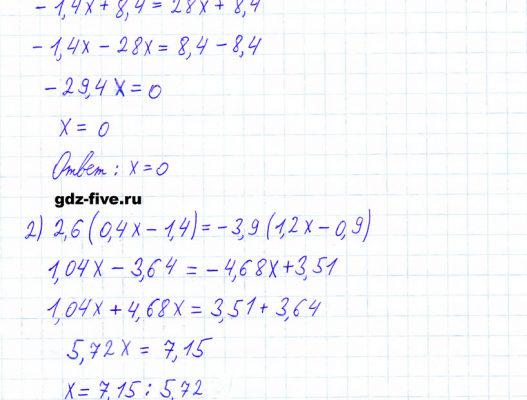 - 1,4x + 8,4 = 28x + 8,4
- 1,4x - 28x = 8,4 - 8,4
- 29,4 x = 0
x = 0
Ответ : x = 0
gdz-five.ru
2) 2,6 (0,4x - 1,4) = - 3,9 (1,2x - 0,9)
1,04x - 3,64 = - 4,68x + 3,51
1,04x + 4,68x = 3,51 + 3,64
5,72x = 7,15
x = 7,15 : 5,72